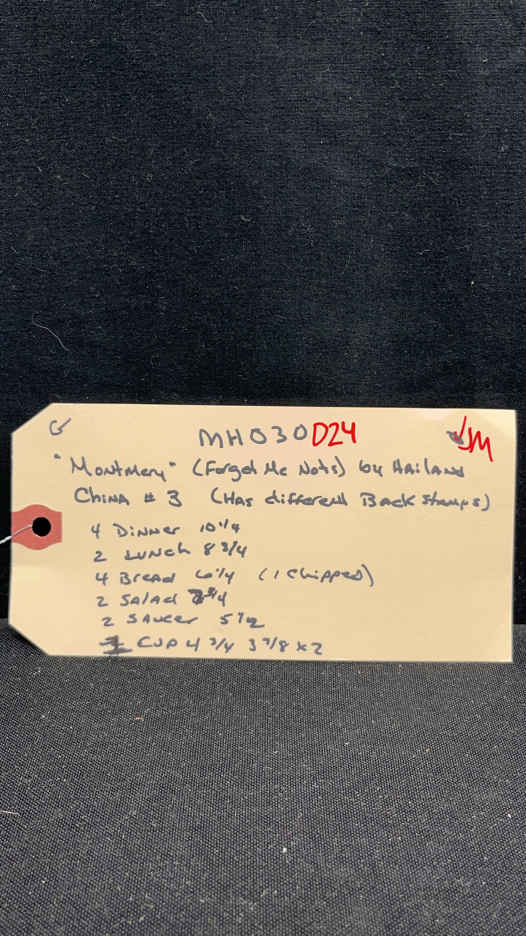 G MH030D24 JM
"Montmery" (Forget Me Nots) by Hailand
China # 3 (Has different Back Stamps)
4 Dinner 10 1/4
2 Lunch 8 3/4
4 Bread 6 1/4 (1 Chipped)
2 Salad 3/4
2 Saucer 5 1/2
Cup 4 3/4 3 7/8 x 2